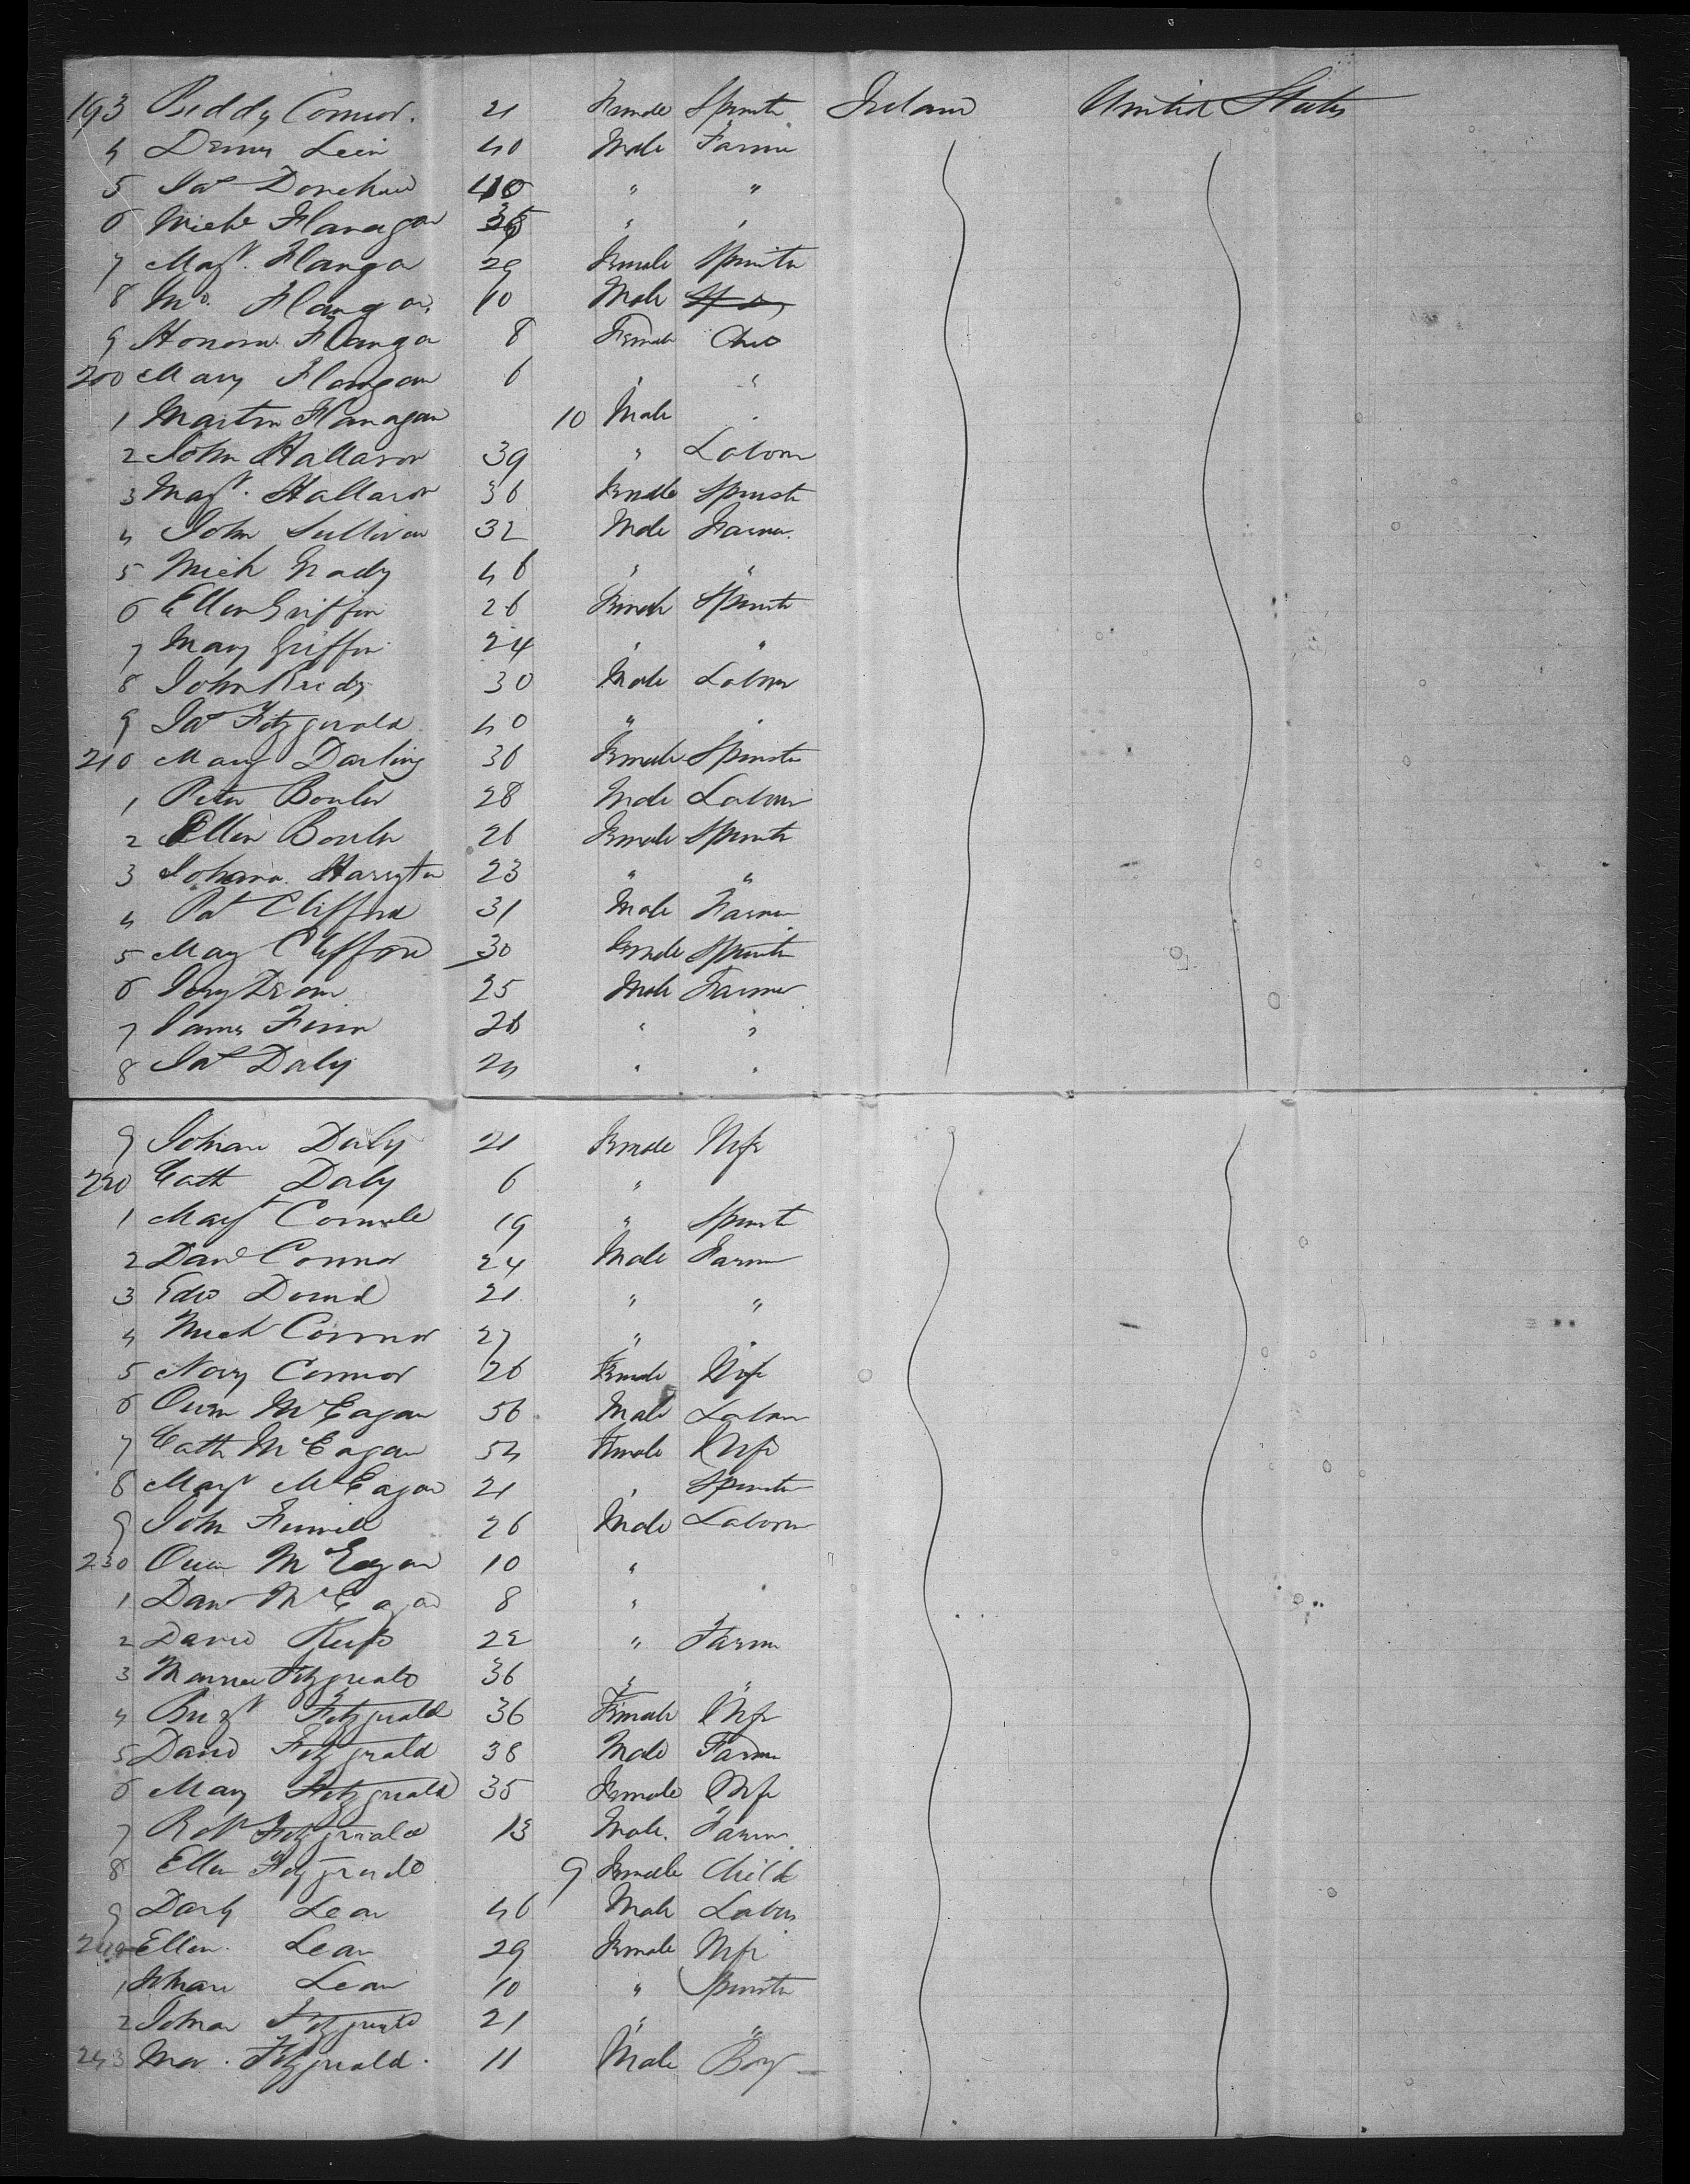 193 Biddy Connor. 21 Female Spinstr Ireland United States
4 Denis Lein 40 Male Farmer
5 Jas Donohue 40 " "
6 Michl Flanagan 35 " "
7 Magt. Flangan 29 Female Spinstr
8 Mo. Flangan 10 Male
9 Honora Flangan 8 Female Child
200 Mary Flangan 6 " "
1 Martin Flanagan 10 Male "
2 John Hallaron 39 " Laborer
3 Magt. Hallaron 36 Female Spinstr
4 John Sullivan 32 Male Farmer
5 Mich Grady 46 " "
6 Ellen Griffin 26 Female Spinstr
7 Mary Griffin 24 " "
8 John Reidy 30 Male Laborer
9 Jas Fitzgerald 40 " "
210 Mary Darling 36 Female Spinstr
1 Peter Bouler 28 Male Laborer
2 Ellen Bouler 26 Female Spinstr
3 Johana Harrgtn 23 " "
4 Pat Clifford 31 Male Farmer
5 Mary Clifford 30 Female Spinstr
6 25 Male Farmer
7 James Finn 26 " "
8 Jas Daly 24 " "
9 Johan Daly 21 Female Wife
220 Cath Daly 6 "
1 Magt 19 " Spinst
2 Danl Connor 24 Male Farmer
3 Edw 21 " "
4 Mich Connor 27 " "
5 Nory Connor 26 Female Wife
6 Owen McEagan 56 Male Labor
7 Cath McEagan 54 Female Wife
8 Magt McEagan 21 " Spinster
9 John 26 Male Laborer
230 Owen McEagan 10 "
1 Danl McEagan 8 "
2 David 22 " Farmer
3 Maurice Fitzgerald 36 " "
4 Brigt Fitzgerald 36 Female Wife
5 David Fitzgerald 38 Male Farmer
6 Mary Fitzgerald 35 Female Wife
7 Robt Fitzgerald 13 Male. Farmer
8 Ellen Fitzgerald 9 Female Child
9 Darby Lean 46 Male Labor
240 Ellen Lean 29 Female Wife
1 Johan Lean 10 " Spinster
2 Johan Fitzgerald 21 " "
243 Fitzgerald. 11 Male Boy